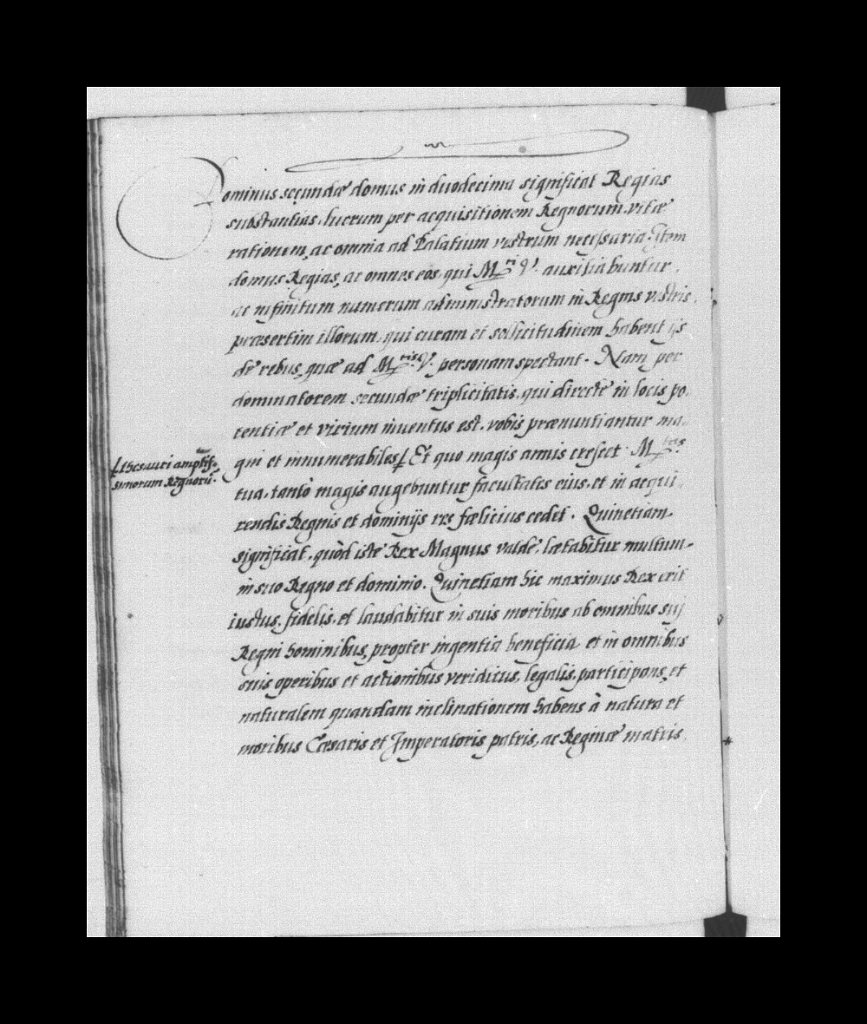 Dominus secundæ domus in duodecima significat Regias
substantias, lucrum per acquisitionem Regnorum, vitæ
rationem, ac omnia ad Palatium vestrum necessaria. Item
domus Regias, ac omnes eos, qui M. V. auxiliabuntur,
ac infinitum numerum administratorum in Regnis vestris,
præsertim illorum, qui curam et sollicitudinem habent ijs
de rebus, quæ ad M. V. personam spectant. Nam per
dominatorem secundæ triplicitatis, qui directe in locis po-
tentiæ et virium inventus est, vobis prænuntiantur ma-
gni et innumerabiles. Et quo magis annis crescet M.
tua, tantò magis augebuntur facultates eius, et in acqui-
rendis Regnis et dominijs res fælicius cedet. Quinetiam
significat, quòd iste Rex Magnus valdè lætabitur multum
in suo Regno et dominio. Quinetiam hic maximus Rex erit
iustus, fidelis, et laudabitur in suis moribus ab omnibus sui
Regni hominibus, propter ingentia beneficia, et in omnibus
suis operibus et actionibus veridicus, legalis, participans, et
naturalem quandam inclinationem habens à natura et
moribus Cæsaris et Imperatoris patris, ac Reginæ matris.
thesauri amplis-
simorum Regnorū.